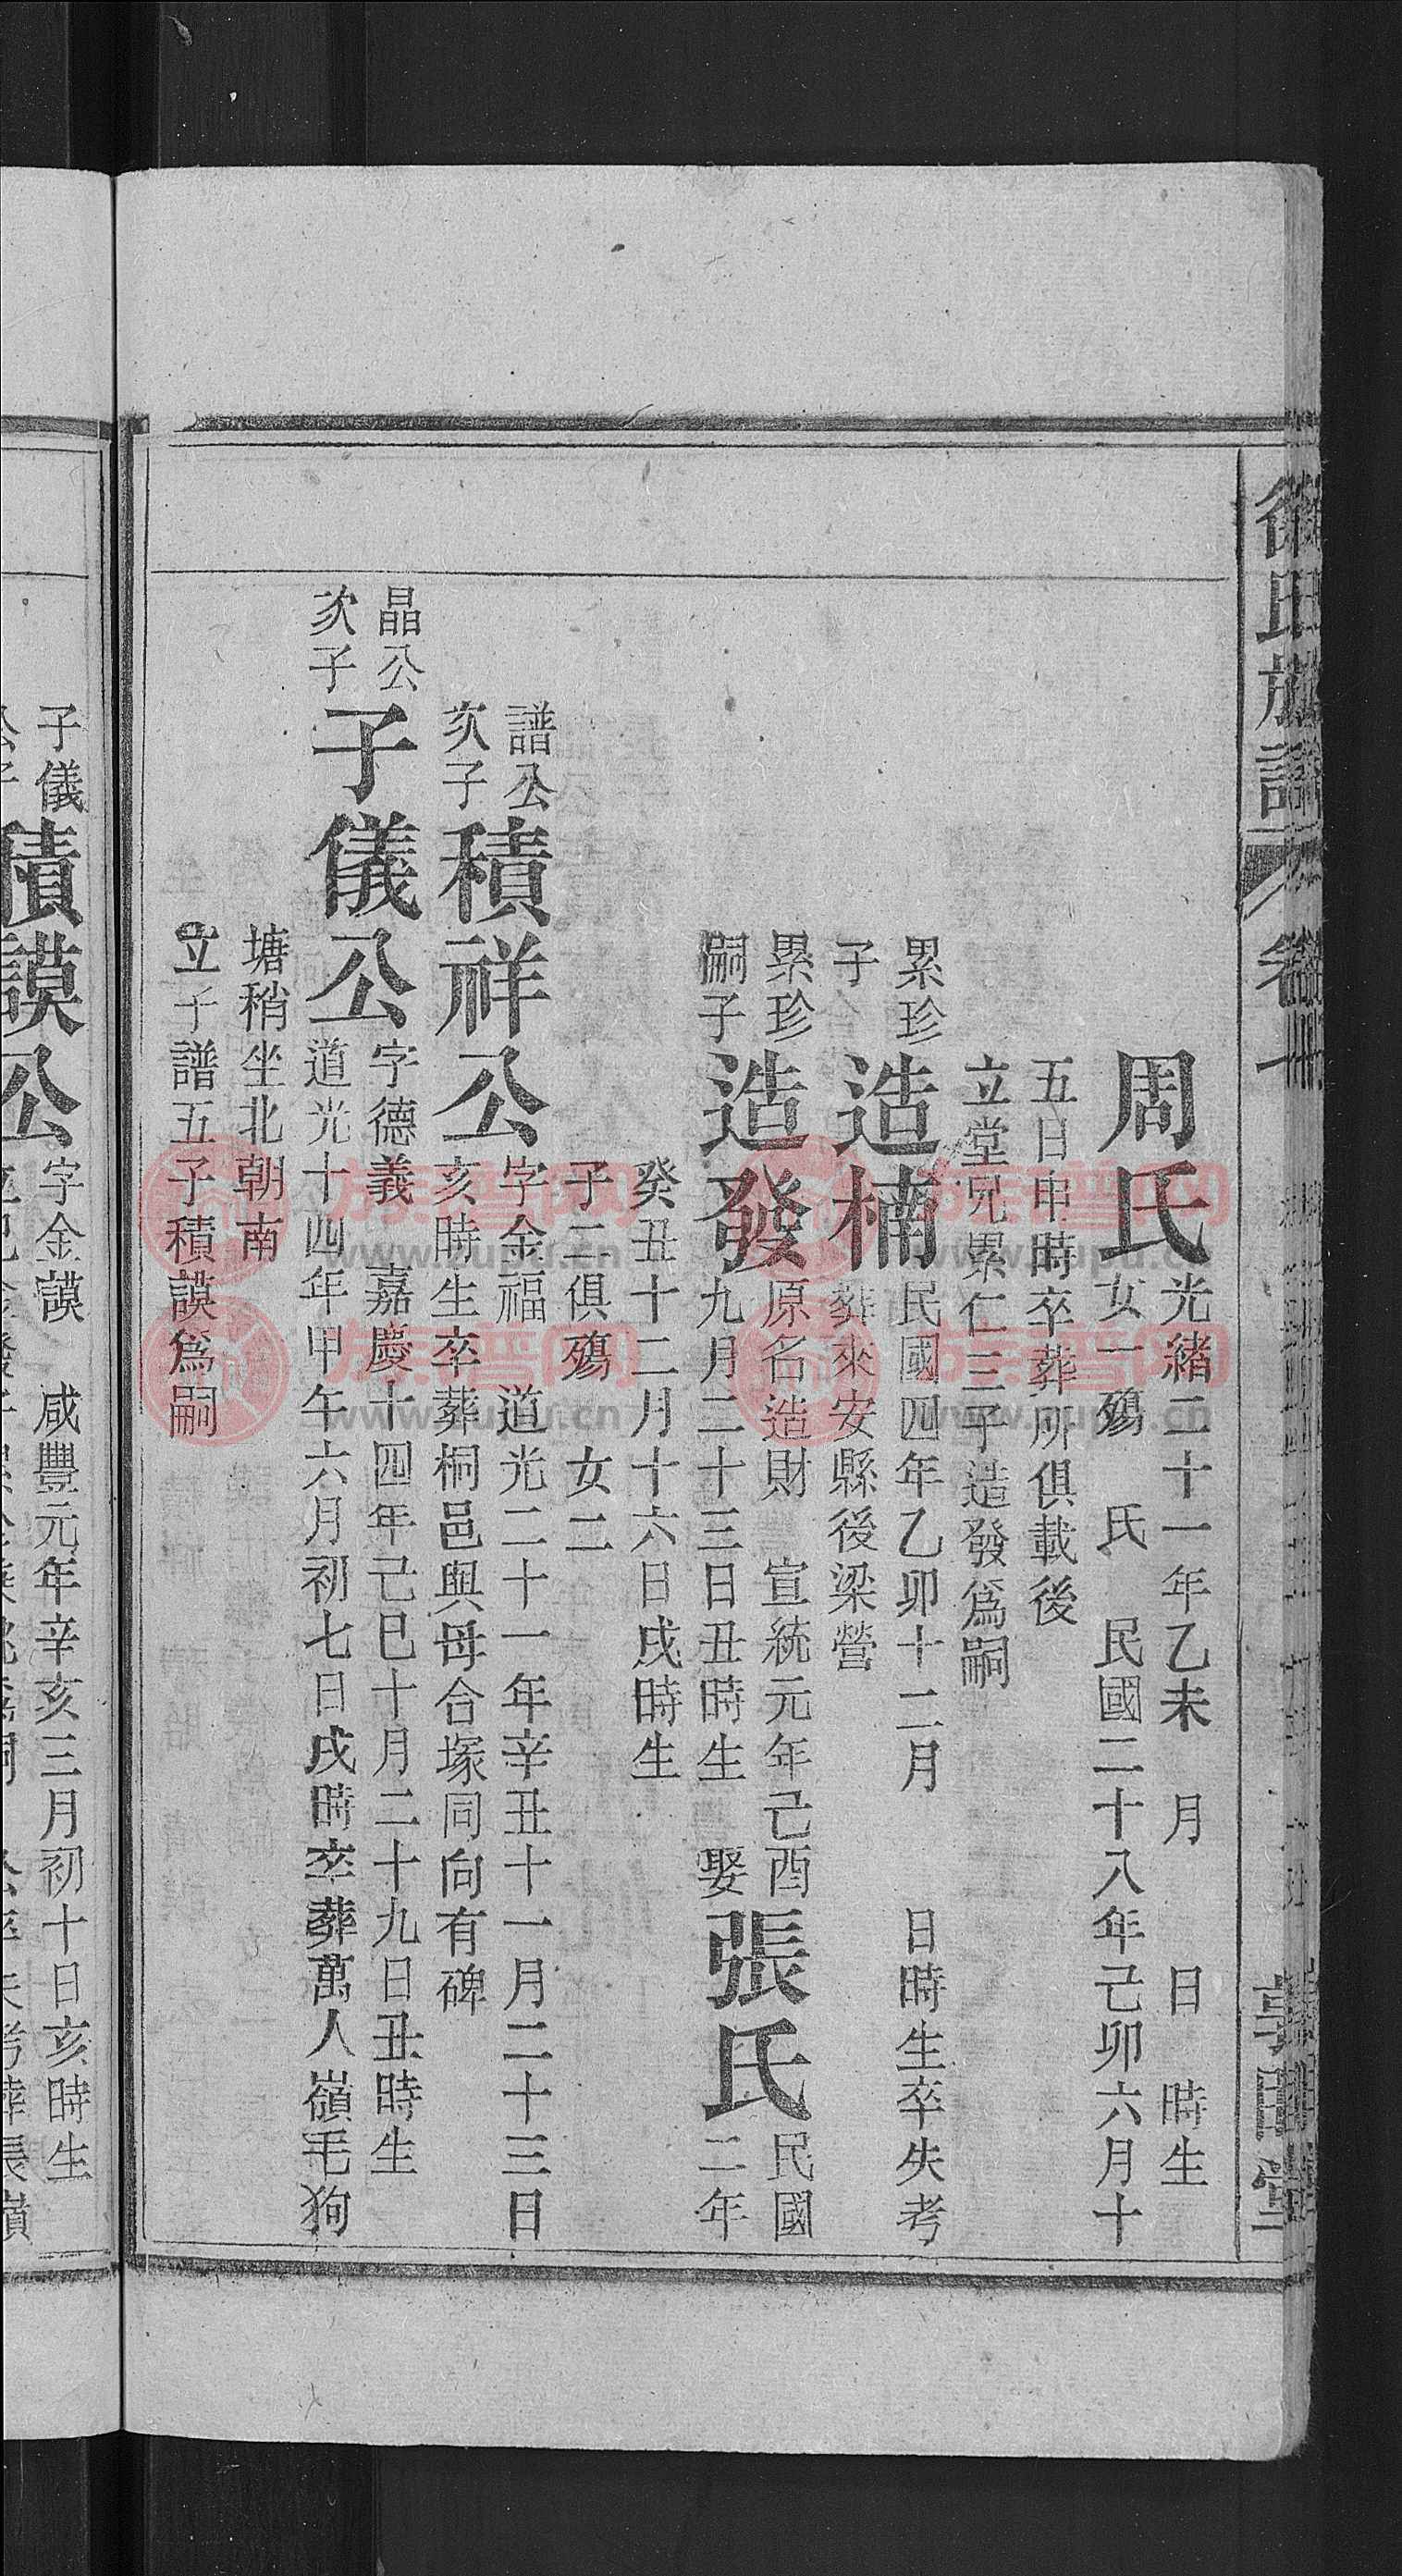 徐氏族譜 卷十
周氏 光緒二十一年乙未 月 日 時生
女一殤 氏 民國二十八年己卯六月十
五日申時卒葬所俱載後
立堂兄累仁三子造發爲嗣
累珍子 造楠 民國四年乙卯十二月 日時生卒失考
葬來安縣後梁營
累珍嗣子 造發 原名造財 宣統元年己酉
九月二十三日丑時生 娶張氏 民國二年
癸丑十二月十六日戌時生
子二俱殤 女二
譜公次子 積祥公 字金福 道光二十一年辛丑十一月二十三日
亥時生卒葬桐邑與母合塚同向有碑
晶公次子 子儀公 字德義 嘉慶十四年己巳十月二十九日丑時生
道光十四年甲午六月初七日戌時卒葬萬人嶺毛狗
塘稍坐北朝南
立子譜五子積謨爲嗣
子儀公子 積謨公 字金謨 咸豐元年辛亥三月初十日亥時生
族譜网
www.zupu.cn